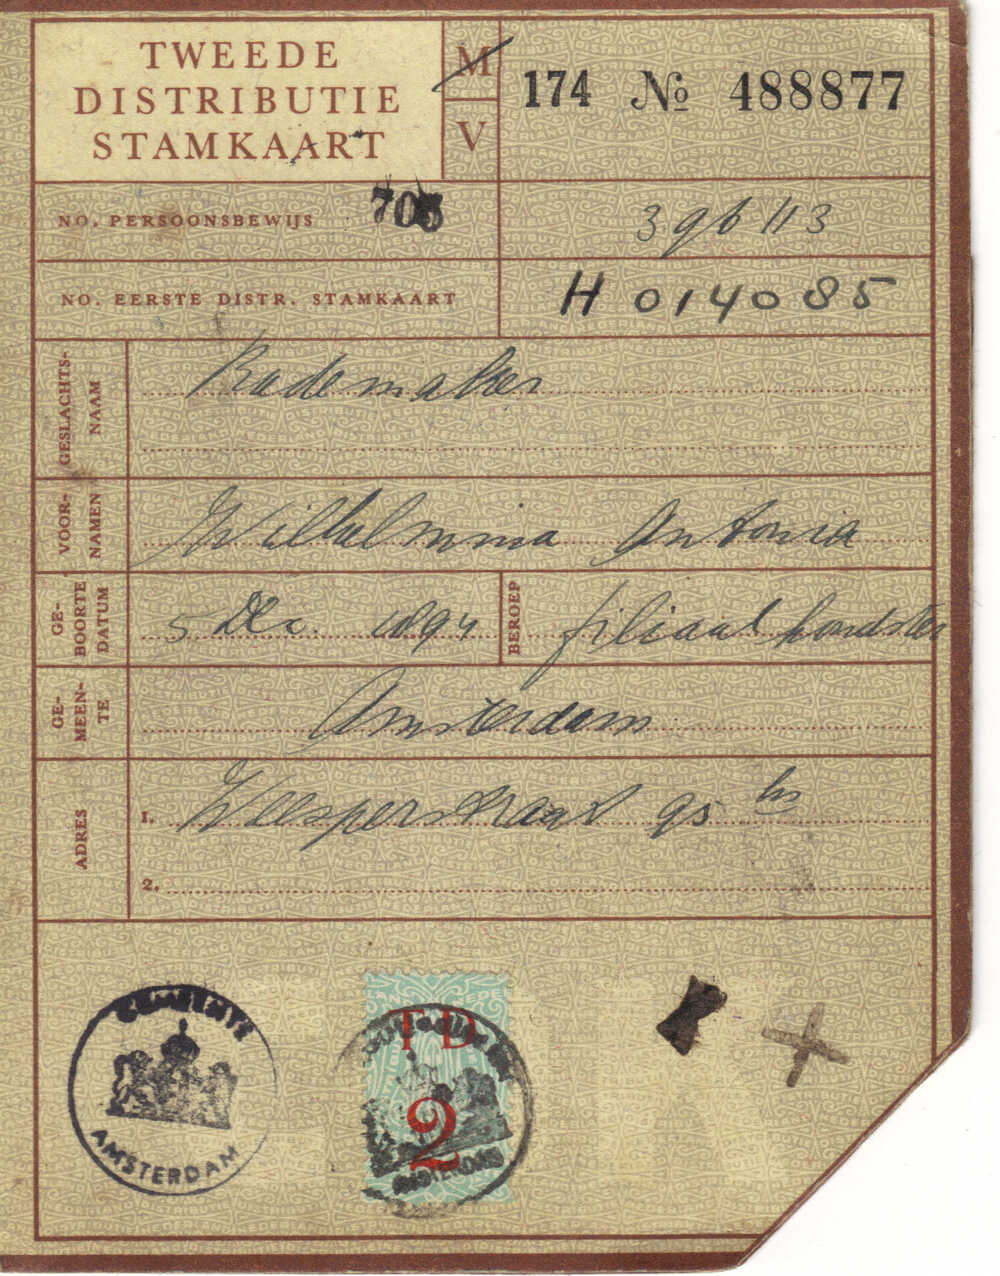 TWEEDE
DISTRIBUTIE
STAMKAART
M
V
174 № 488877
NO. PERSOONSBEWIJS 705
3 96 113
NO. EERSTE DISTR. STAMKAART
H 014085
GESLACHTS-
NAAM
Rademaker
VOOR-
NAMEN
Wilhelmina Antonia
GE-
BOORTE
DATUM
5 Dec. 1894
BEROEP
filiaalhoudster
GE-
MEEN-
TE
Amsterdam
ADRES
1. Weesperstraat 95 hs
2.
GEMEENTE
AMSTERDAM
TD
2